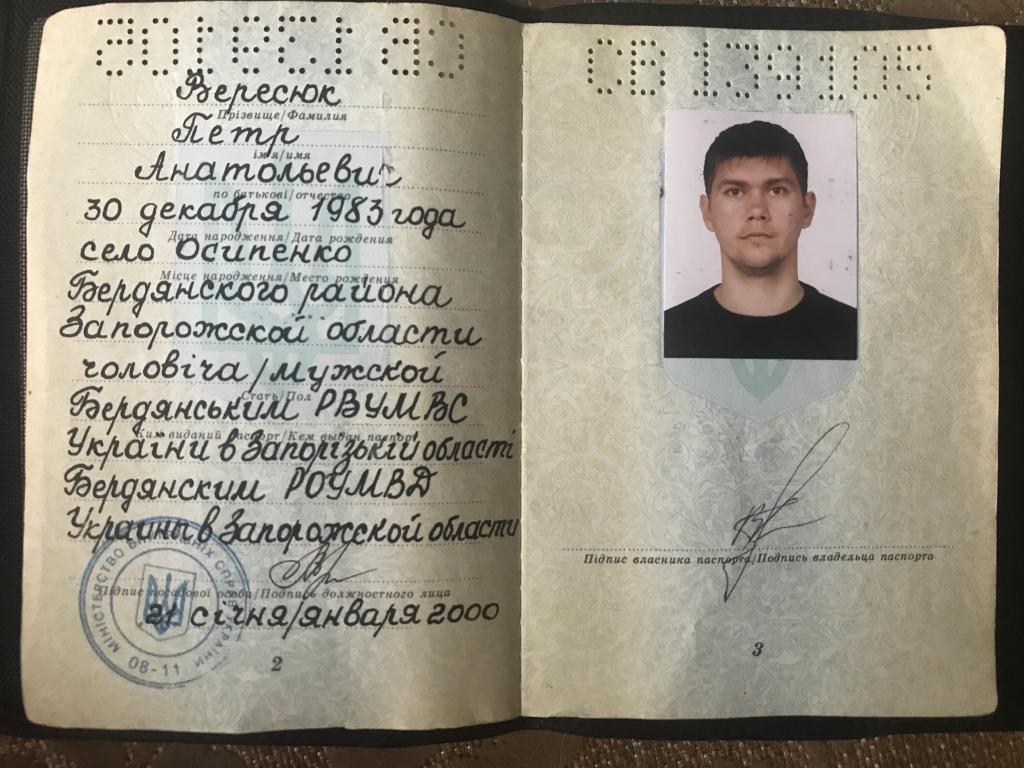 Вересюк
Прізвище/Фамилия
Петр
ім'я/имя
Анатольевич
по батькові/отчество
30 декабря 1983 года
Дата народження/Дата рождения
село Осипенко
Місце народження/Место рождения
Бердянского района
Запорожской области
чоловіча/мужской
Стать/Пол
Бердянським РВУМВС
Ким виданий паспорт/Кем выдан паспорт
України в Запорізькій області
Бердянским РОУМВД
Украины в Запорожской области
Підпис посадової особи/Подпись должностного лица
21 січня/января 2000
МІНІСТЕРСТВО ВНУТРІШНІХ СПРАВ УКРАЇНИ
08-11
2
СВ 139105
Підпис власника паспорта/Подпись владельца паспорта
3